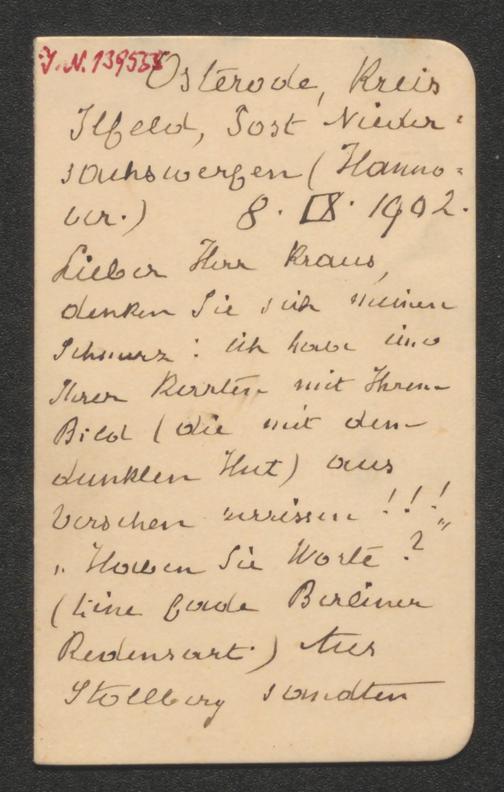 J.N. 139558
Osterode, Kreis
Ilfeld, Post Nieder-
sachswerfen (Hanno-
ver.) 8. IX. 1902.
Lieber Herr Kraus,
denken Sie sich meinen
Schmerz: ich habe eine
Ihrer Karten mit Ihrem
Bild (die mit dem
dunklen Hut) aus
Versehen zerrissen!!!
„Haben Sie Worte?"
(Eine fade Berliner
Redensart.) Aus
Stollberg sandten